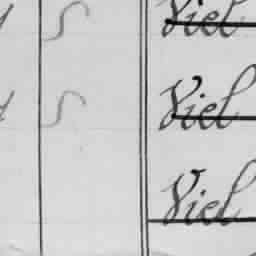 S Viel
S Viel
Viel